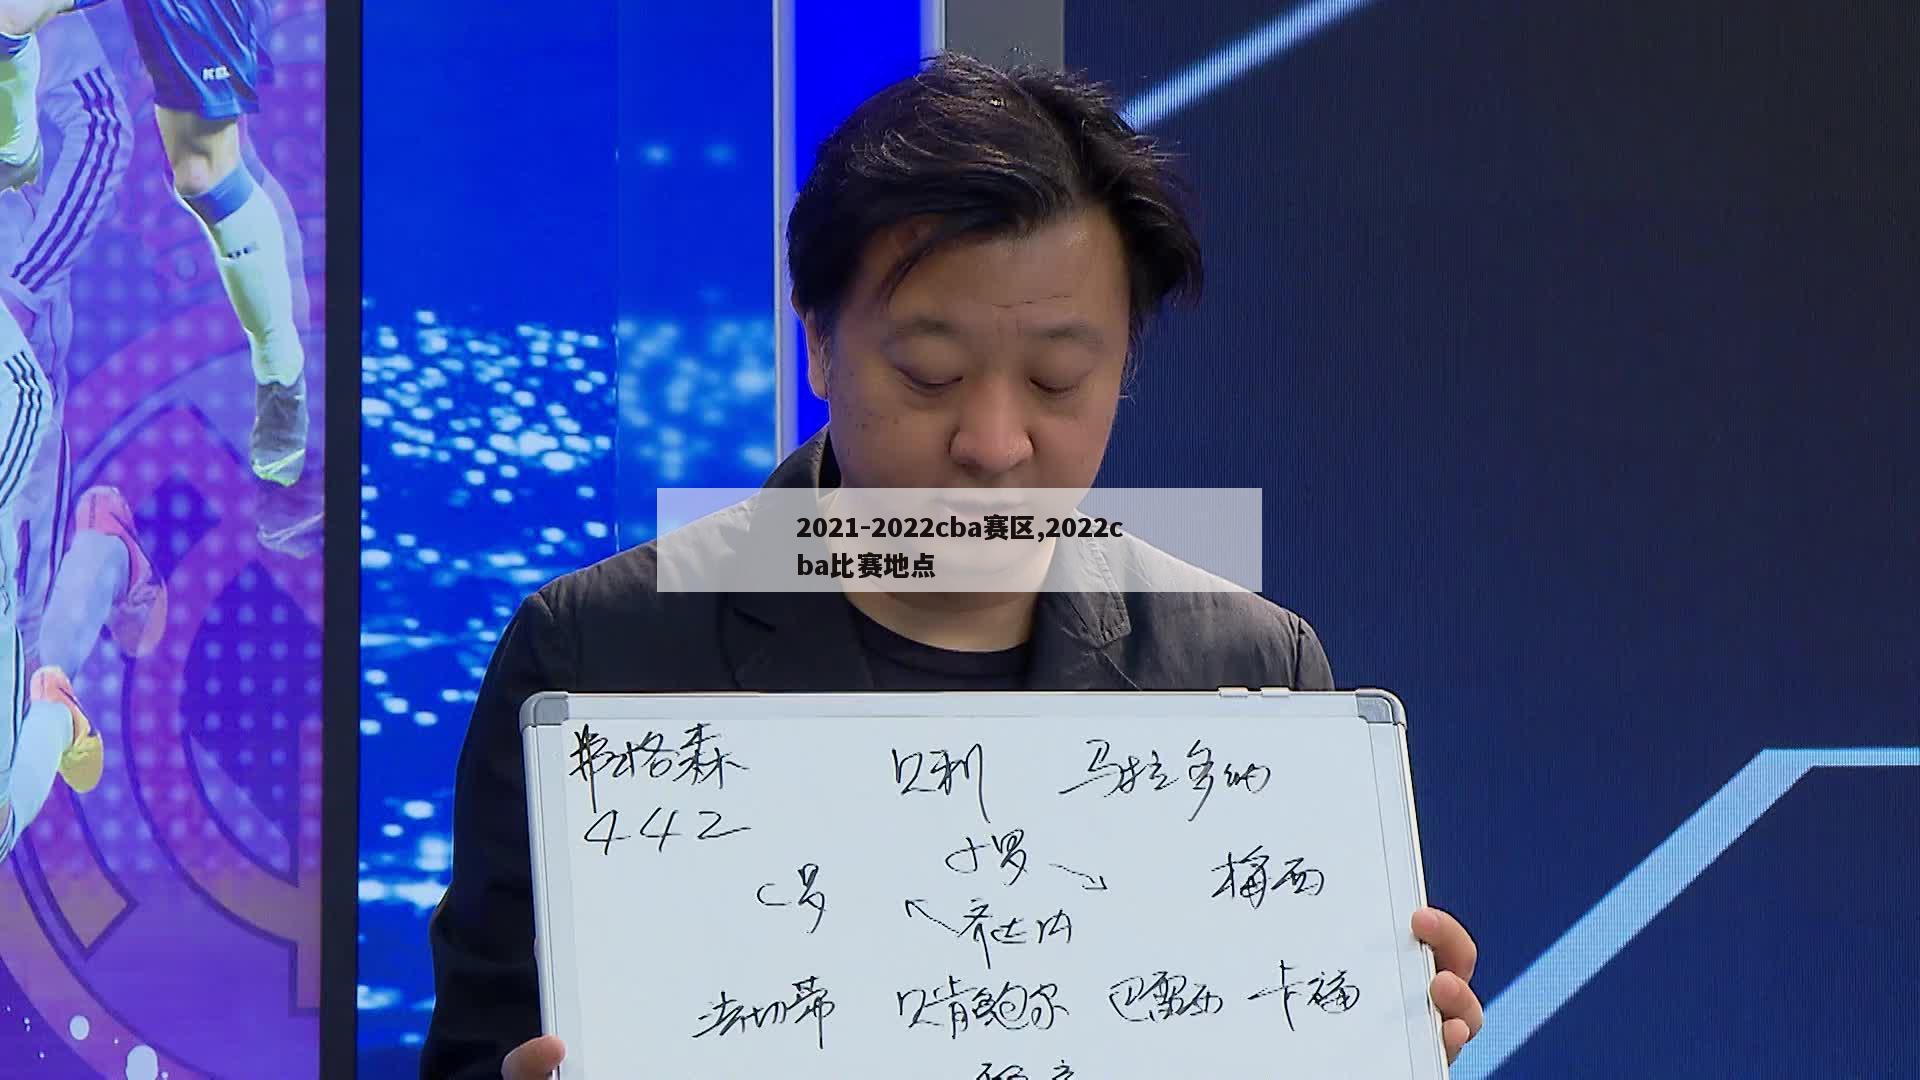 2021-2022cba赛区,2022c
ba比赛地点
弗格森 贝利 马拉多纳
442
小罗
C罗 梅西
齐达内
法切蒂 贝肯鲍尔 巴雷西 卡福